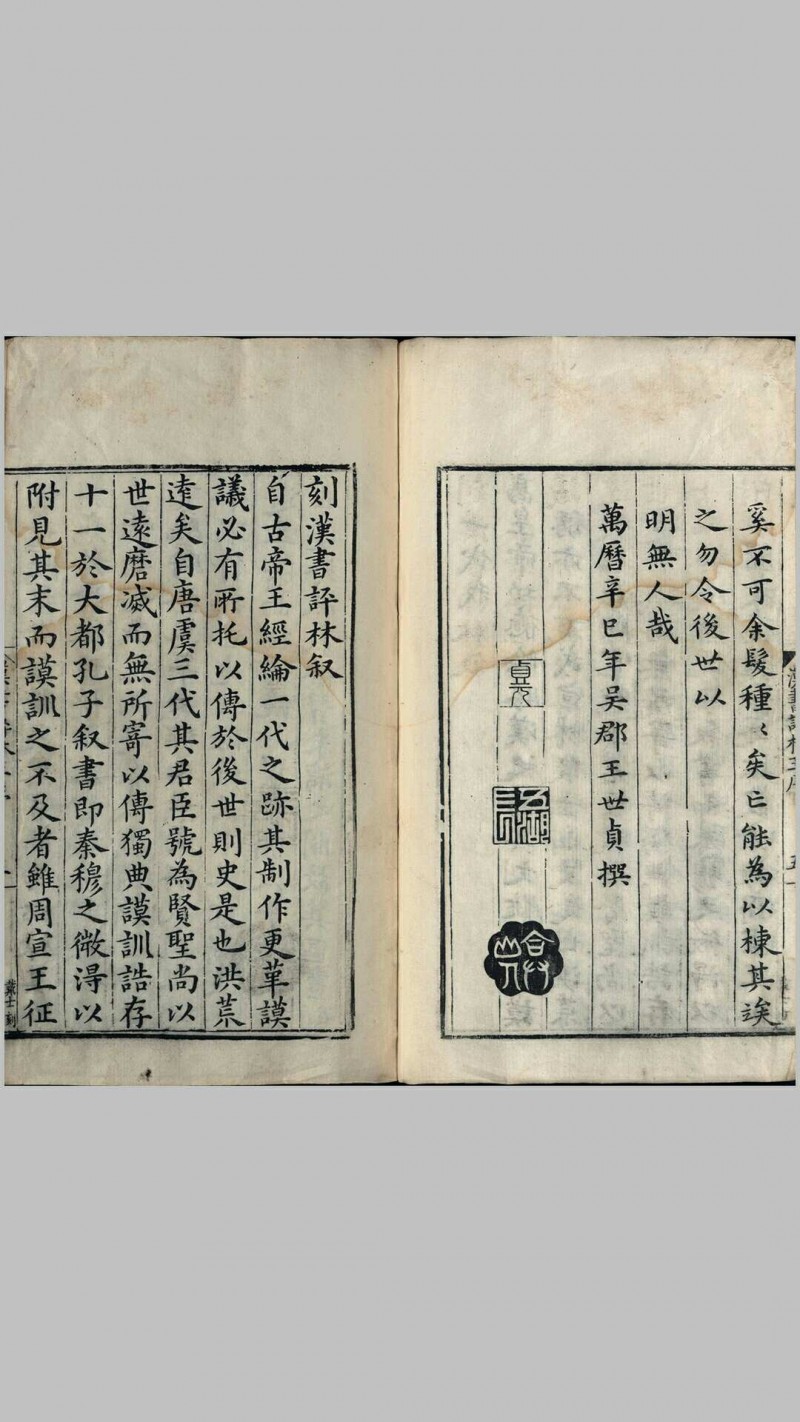 奚不可余髮種〻矣亡能為以楝其竢
之勿令後世以
明無人哉
萬曆辛巳年吳郡王世貞撰
貞元
刻漢書評林叙
自古帝王經綸一代之跡其制作更革謨
議必有所托以傳於後世則史是也洪荒
逺矣自唐虞三代其君臣號為賢聖尚以
世逺磨滅而無所寄以傳獨典謨訓誥存
十一於大都孔子叙書即秦穆之微淂以
附見其末而謨訓之不及者雖周宣王征